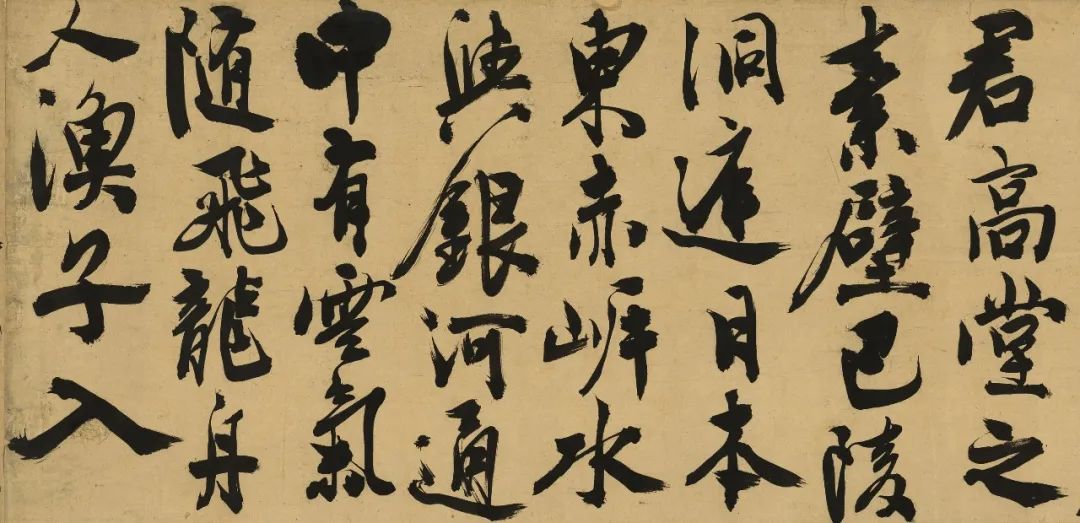 君高堂之
素壁巴陵
洞庭日本
東赤岸水
與銀河通
中有雲氣
随飛龍舟
人漁子入